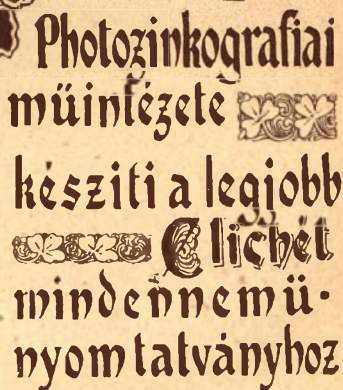 Photozinkografiai
műintézete
késziti a legjobb
Clichét
mindennemü-
nyomtatványhoz